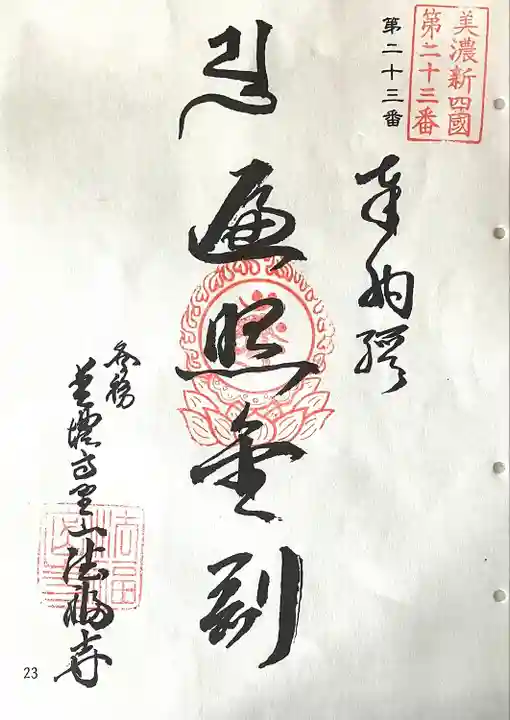 美濃新四國
第二十三番
第二十三番
奉納経
遍照金剛
各務
高野山法福寺
法福
23